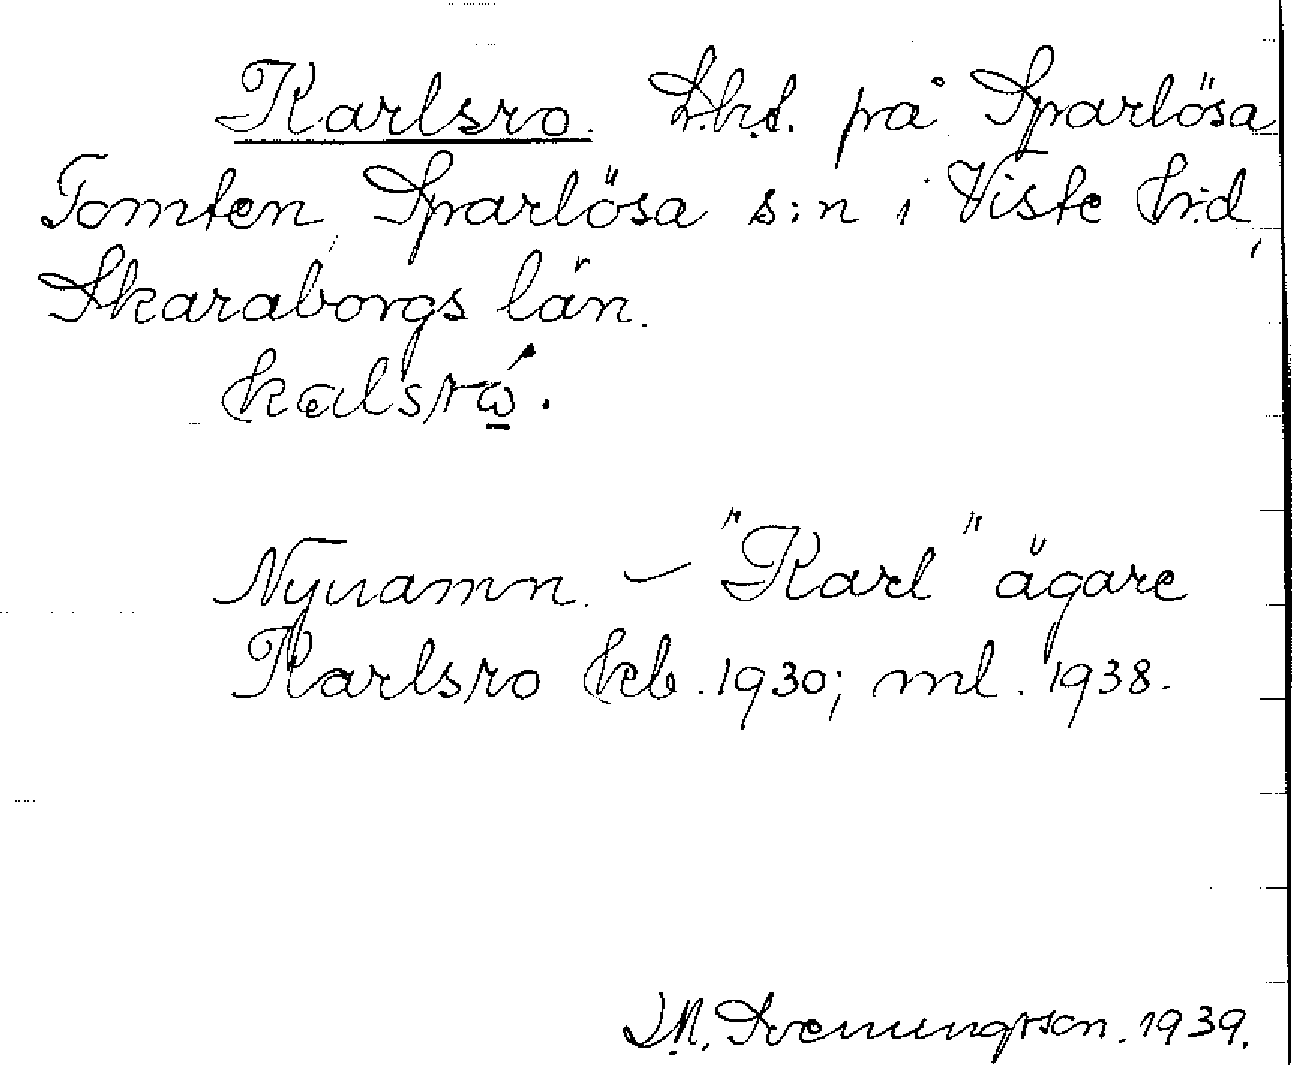 Karlsro. L.h.t. på Sparlösa
Tomten, Sparlösa s:n i Viste hrd,
Skaraborgs län.
kalsró.
Nynamn. – "Karl" ägare
Karlsro kb. 1930; ml. 1938.
Svenungsson. 1939.